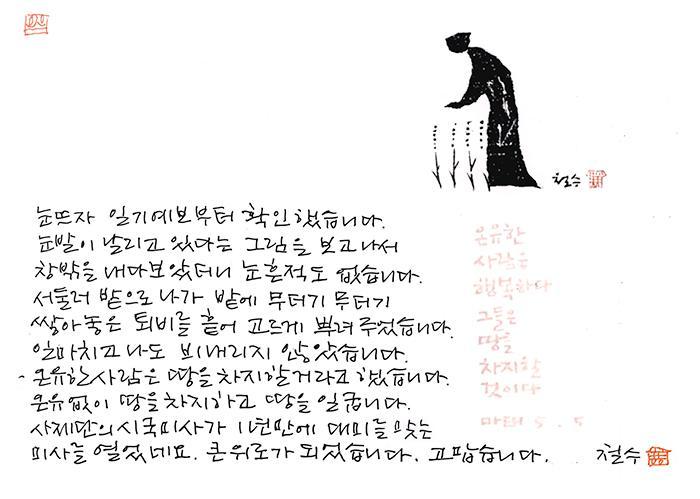 철수
눈뜨자 일기예보부터 확인했습니다.
눈발이 날리고 있다는 그림을 보고나서
창밖을 내다보았더니 눈흔적도 없습니다.
서둘러 밭으로 나가 밭에 무더기 무더기
쌓아놓은 퇴비를 흩어 고르게 뿌려 주었습니다.
일마치고나도 비내리지 않았습니다.
- 온유한사람은 땅을 차지할거라고 했습니다.
온유없이 땅을 차지하고 땅을 일굽니다.
사제단의 시국미사가 11년만에 대미를 맞는
미사를 열었네요. 큰 위로가 되었습니다. 고맙습니다.
철수
온유한
사람은
행복하다
그들은
땅을
차지할
것이다
마태 5.5